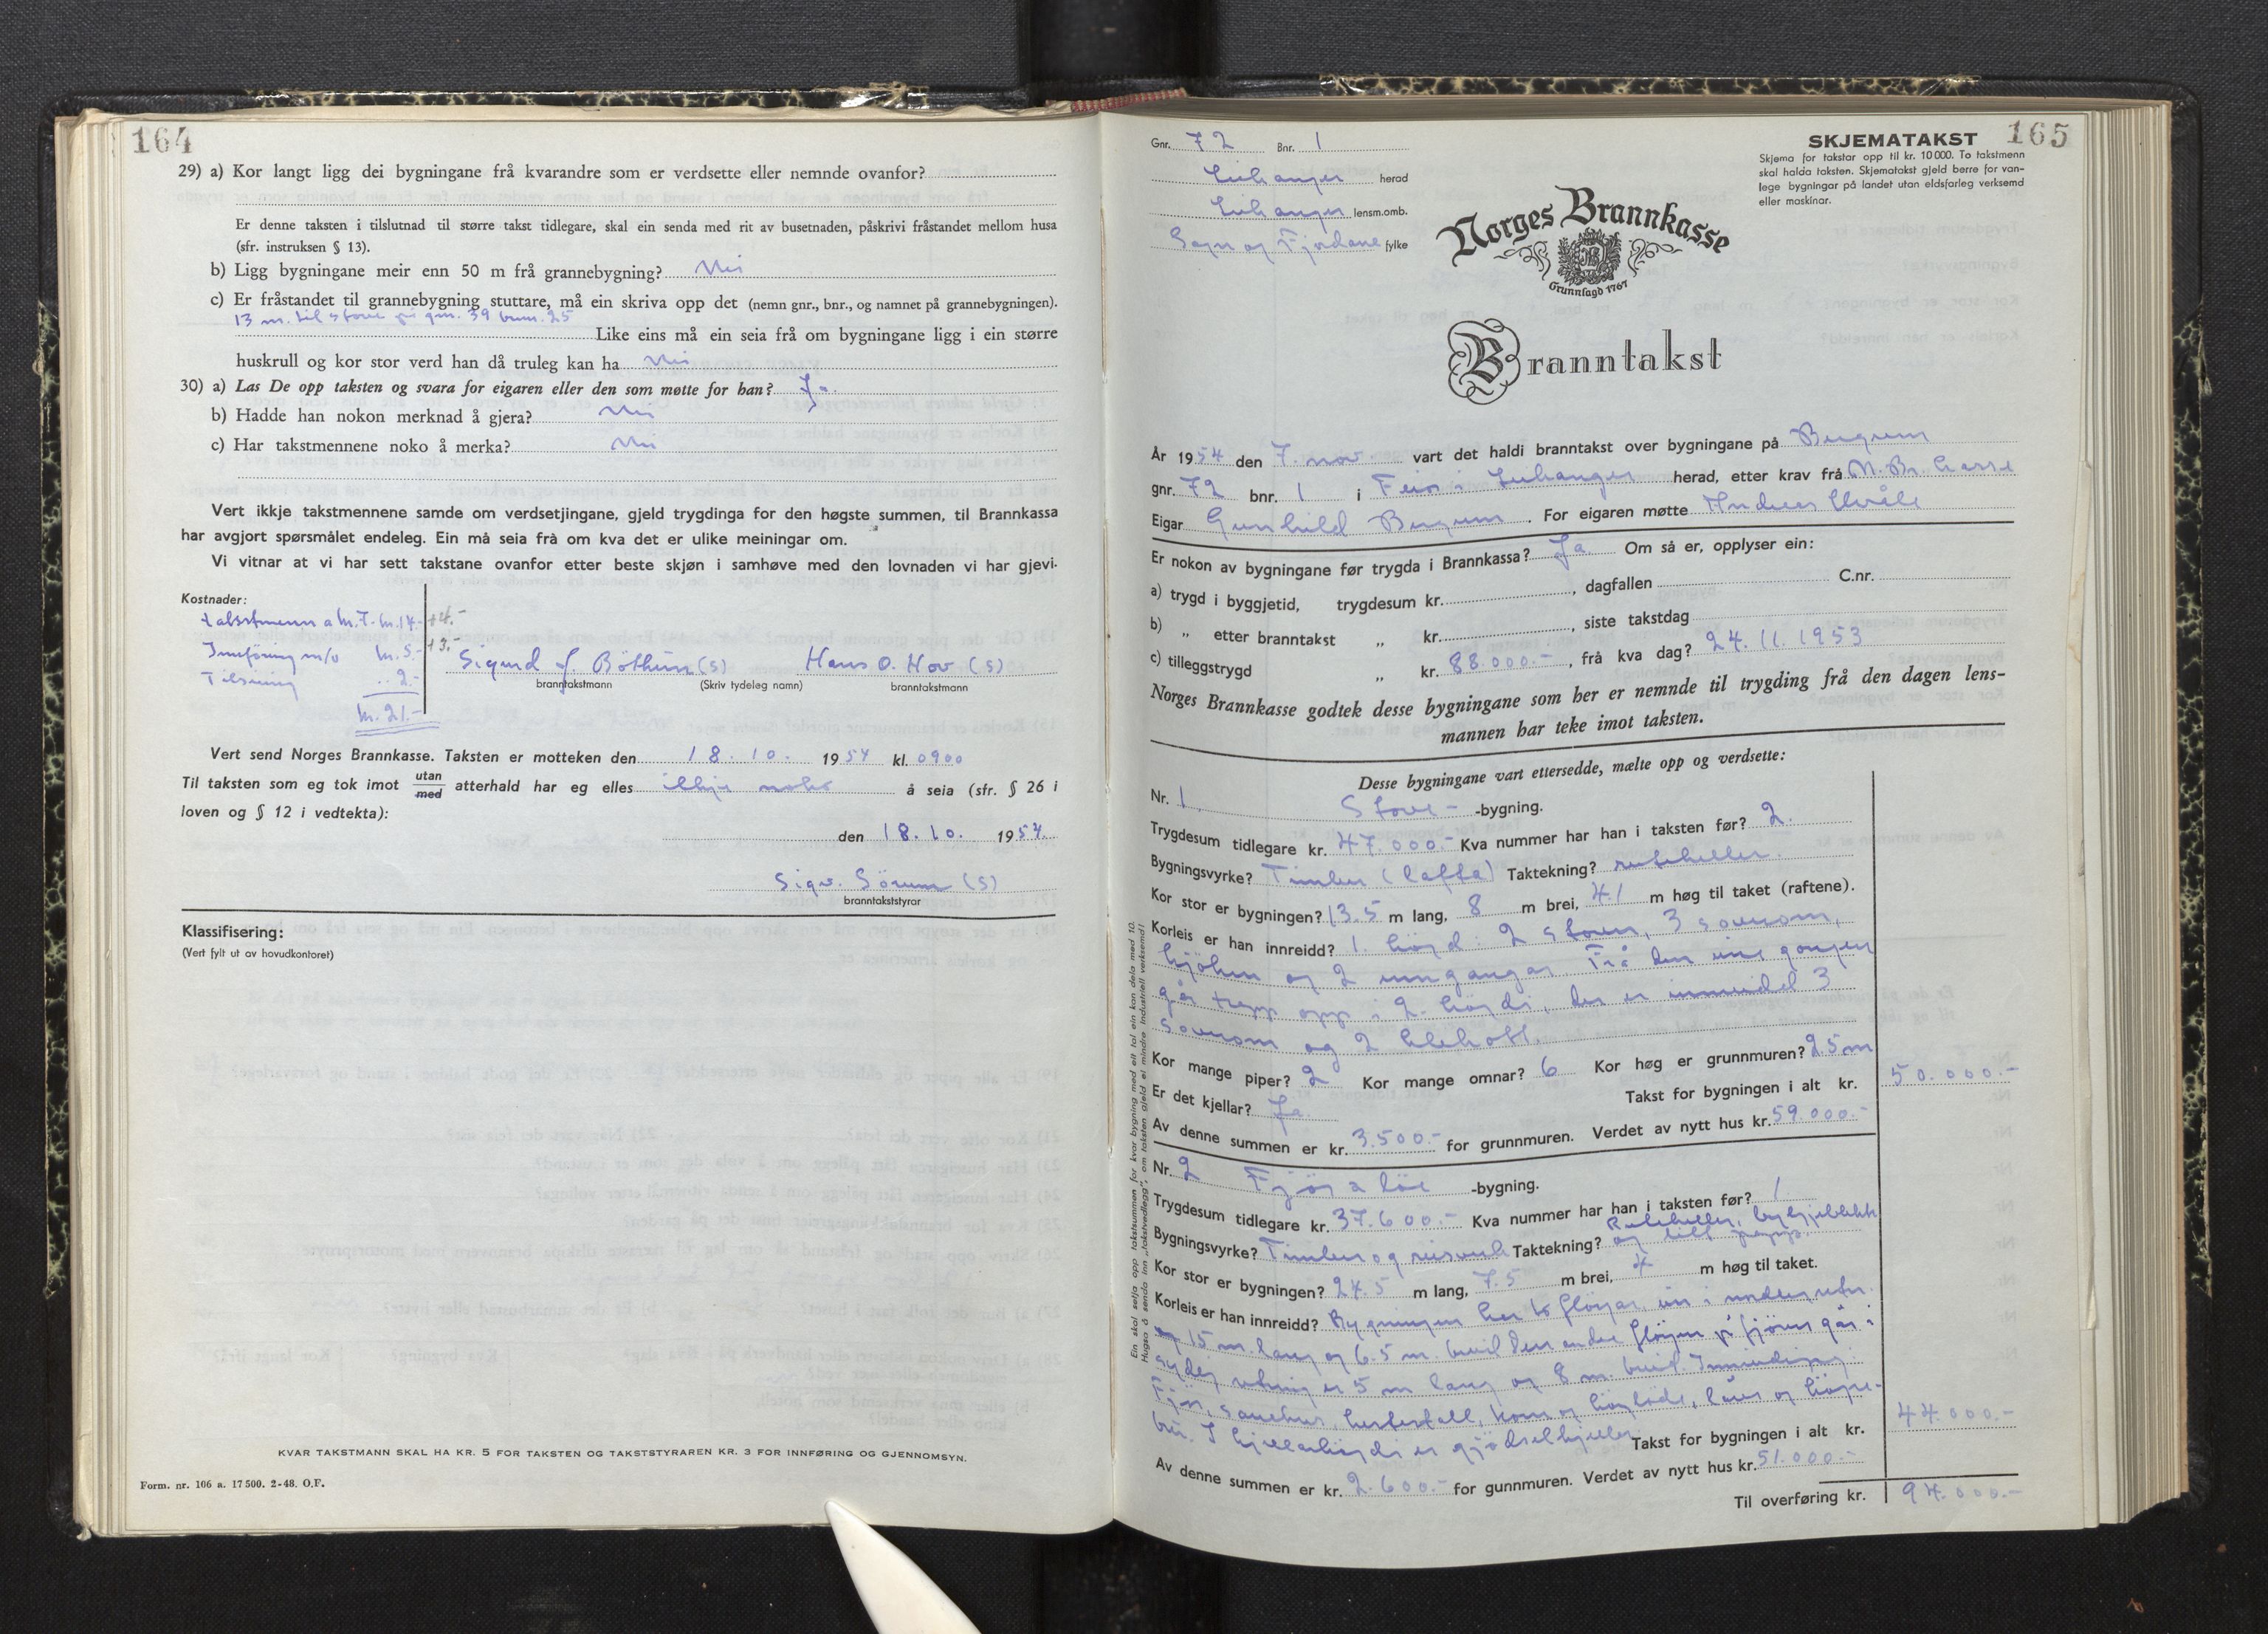 164
29) a) Kor langt ligg dei bygningane frå kvarandre som er verdsette eller nemnde ovanfor?
Er denne taksten i tilslutnad til større takst tidlegare, skal ein senda med rit av busetnaden, påskrivi fråstandet mellom husa
(sfr. instruksen § 13).
b) Ligg bygningane meir enn 50 m frå grannebygning? Nei
c) Er fråstandet til grannebygning stuttare, må ein skriva opp det (nemn gnr., bnr., og namnet på grannebygningen).
13 m. til stove på gnr. 39 bnr. 25
Like eins må ein seia frå om bygningane ligg i ein større
huskrull og kor stor verd han då truleg kan ha Nei
30) a) Las De opp taksten og svara for eigaren eller den som møtte for han? Ja.
b) Hadde han nokon merknad å gjera? Nei
c) Har takstmennene noko å merka? Nei
Vert ikkje takstmennene samde om verdsetjingane, gjeld trygdinga for den høgste summen, til Brannkassa
har avgjort spørsmålet endeleg. Ein må seia frå om kva det er ulike meiningar om.
Vi vitnar at vi har sett takstane ovanfor etter beste skjøn i samhøve med den lovnaden vi har gjevi.
Kostnader:
takstmenn a kr. 7.- kr. 14.- +4.-
Innföring m/v kr. 5.- +3.-
2.-
kr. 21.-
Sigurd J. Böthun (S) Hans O. Hov (S)
branntakstmann (Skriv tydeleg namn) branntakstmann
Vert send Norges Brannkasse. Taksten er motteken den 18.10. 1954 kl. 0900
Til taksten som eg tok imot utan/med atterhald har eg elles ikkje noko å seia (sfr. § 26 i
loven og § 12 i vedtekta):
den 18.10. 1954.
Sigv. Sörum (S)
branntakststyrar
Klassifisering:
(Vert fylt ut av hovudkontoret)
KVAR TAKSTMANN SKAL HA KR. 5 FOR TAKSTEN OG TAKSTSTYRAREN KR. 3 FOR INNFØRING OG GJENNOMSYN.
Form. nr. 106 a. 17 500. 2-48. O.F.
165
Gnr. 72 Bnr. 1
Leikanger herad
Leikanger lensm.omb.
Sogn og Fjordane fylke
SKJEMATAKST
Skjema for takstar opp til kr. 10 000. To takstmenn
skal halda taksten. Skjematakst gjeld berre for van-
lege bygningar på landet utan eldsfarleg verksemd
eller maskinar.
Norges Brannkasse
Grunnlagd 1767
Branntakst
År 1954 den 7. nov. vart det haldi branntakst over bygningane på Bergum
gnr. 72 bnr. 1 i Feios i Leikanger herad, etter krav frå N. Br. Casse
Eigar Gunhild Bergum. For eigaren møtte Andreas
Er nokon av bygningane før trygda i Brannkassa? Ja. Om så er, opplyser ein:
a) trygd i byggjetid, trygdesum kr. , dagfallen C.nr.
b) „ etter branntakst „ kr. , siste takstdag
c) tilleggstrygd „ kr. 88.000.-, frå kva dag? 24.11.1953
Norges Brannkasse godtek desse bygningane som her er nemnde til trygding frå den dagen lens-
mannen har teke imot taksten.
Desse bygningane vart ettersedde, mælte opp og verdsette:
Nr. 1. Stove- -bygning.
Trygdesum tidlegare kr. 47.000.- Kva nummer har han i taksten før? 2.
Bygningsvyrke? Timber (lafta) Taktekning? ruteheller.
Kor stor er bygningen? 13.5 m lang, 8 m brei, 4.1 m høg til taket (raftene).
Korleis er han innreidd? 1. högd: 2 stover, 3 soverom,
kjöken og 2 inngangar. Frå den eine gangen
går trapp opp i 2. högdi, der er innreidd 3
soverom og 2 klekott.
Kor mange piper? 2 Kor mange omnar? 6 Kor høg er grunnmuren? 2.5 m
Er det kjellar? Ja. Takst for bygningen i alt kr. 50.000.-
Av denne summen er kr. 3.500.- for grunnmuren. Verdet av nytt hus kr. 59.000.-
Nr. 2 Fjös a löe -bygning.
Trygdesum tidlegare kr. 37.600.- Kva nummer har han i taksten før? 1
Bygningsvyrke? Timber og reisverk Taktekning? Ruteheller, bylgjeblikk
og litt papp.
Kor stor er bygningen? 24.5 m lang, 7.5 m brei, 4 m høg til taket.
Korleis er han innreidd? Bygningen har to flöyar, ein i
15 m. lang og 6.5 m. breid Den andre flöyen på fjösen går i
er 5 m lang og 8 m. breid. Innreiding:
Fjös, sauehus, hestestall, korn og höylåde, låver og
bu. I kjellarhögdi er gjödselkjeller Takst for bygningen i alt kr. 44.000.-
Av denne summen er kr. 2.600.- for gunnmuren. Verdet av nytt hus kr. 51.000.-
Til overføring kr. 94.000.-
Ein skal setja opp takstsummen for kvar bygning med eit tal ein kan dela med 10.
Hugsa å senda inn „takstvedlegg", om taksten gjeld ei mindre industriell verksemd!